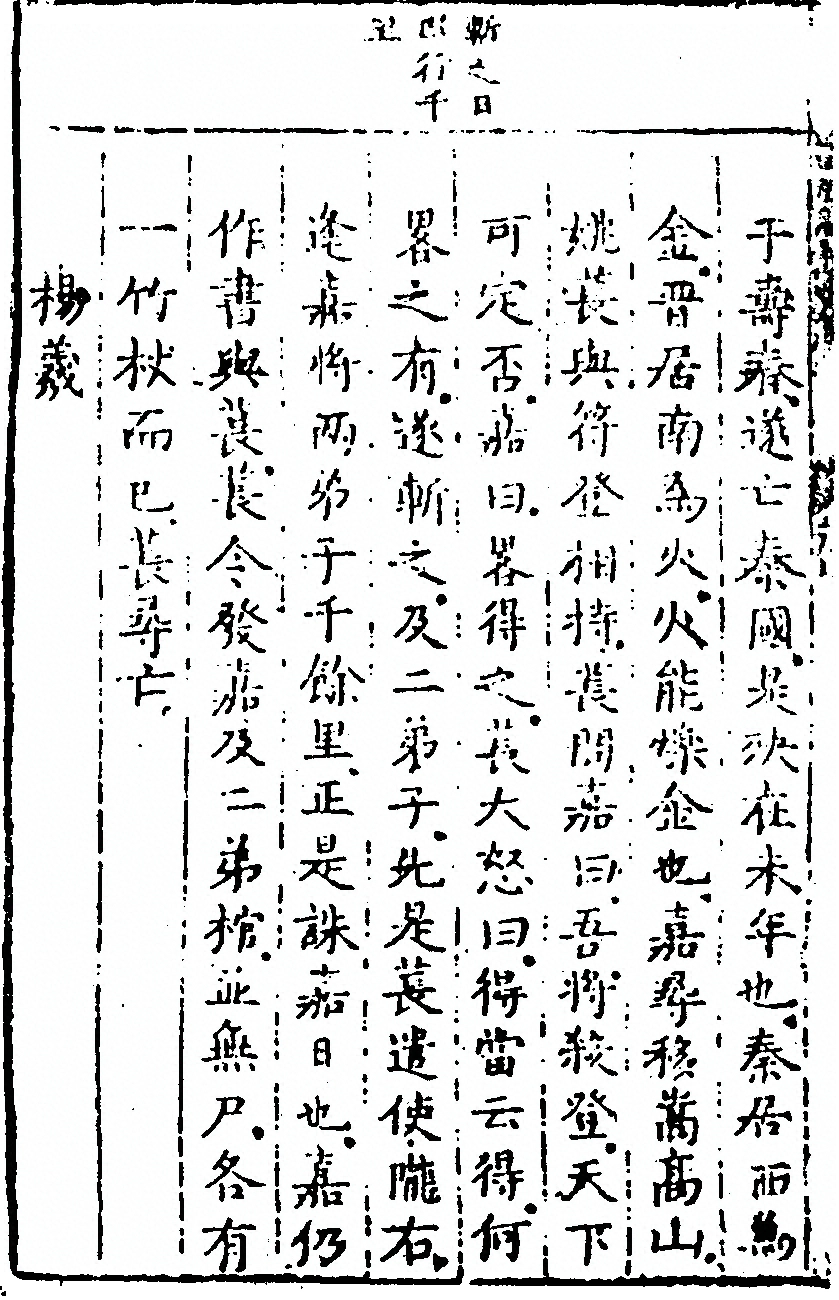 斬之日
即行千
里
于壽春遂亡秦國是殃在未年也秦居西為
金晋居南為火火能爍金也嘉尋移嵩高山
姚萇與符登相持萇問嘉曰吾將殺登天下
可定否嘉曰畧得之萇大怒曰得當云得何
畧之有遂斬之及二弟子先是萇遣使隴右
逢嘉將兩弟子千餘里正是誅嘉日也嘉仍
作書與萇萇令發嘉及二弟棺並無尸各有
一竹杖而已萇尋亡
楊羲